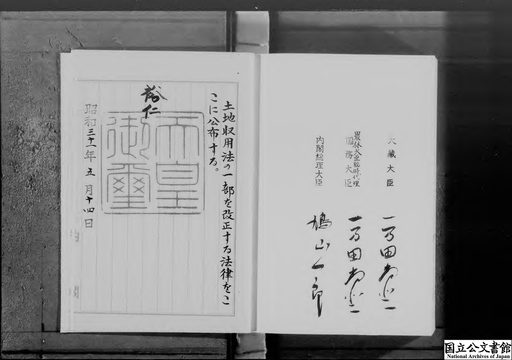 大蔵大臣
一万田尚登
農林大臣臨時代理
国務大臣
一万田尚登
内閣総理大臣
鳩山一郎
土地収用法の一部を改正する法律をこ
こに公布する。
裕仁
天皇
御璽
昭和三十一年五月十四日
国立公文書館
National Archives of Japan